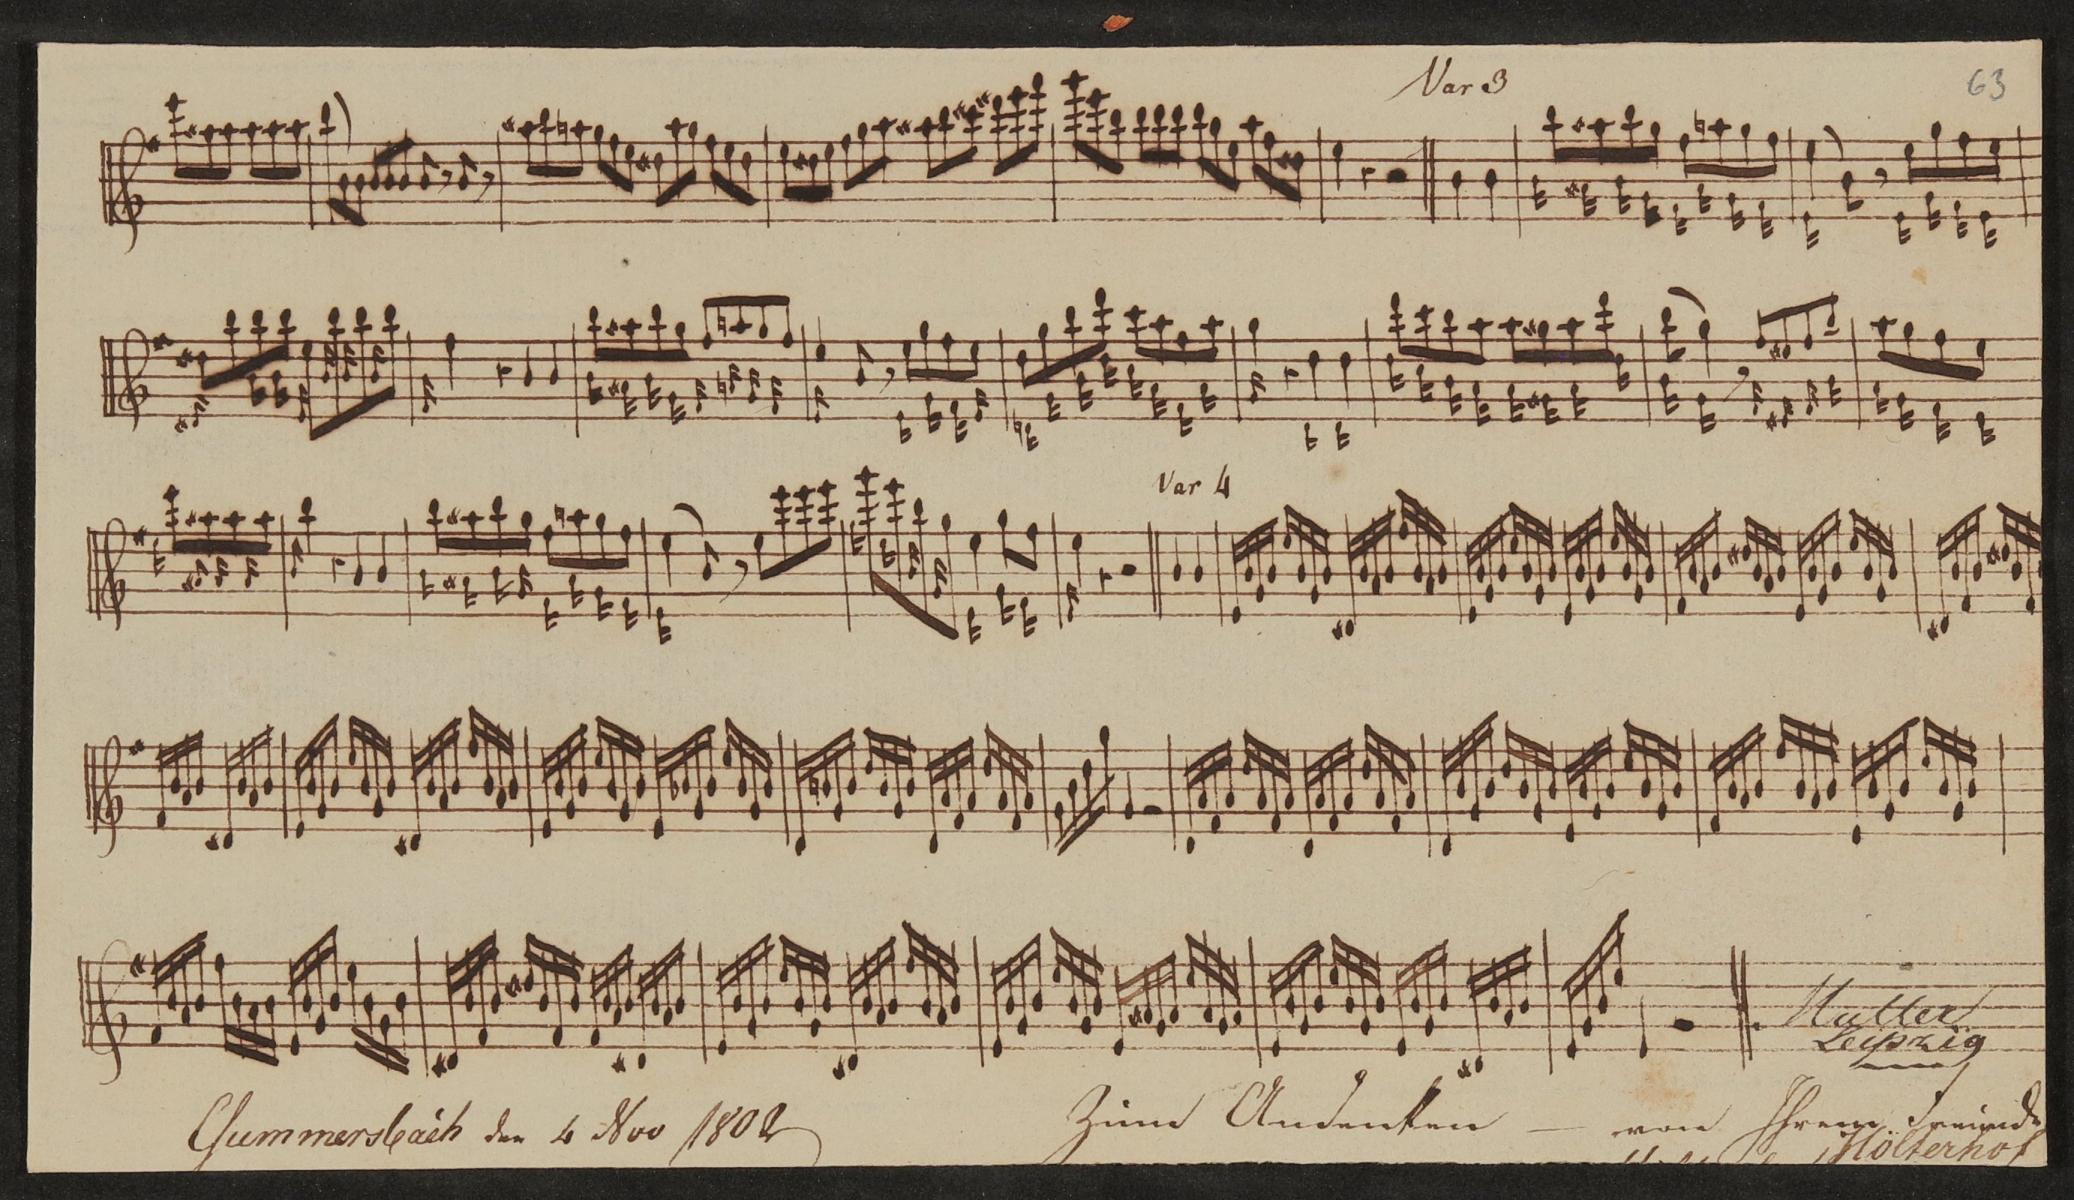 Var 3
63
Var 4
Leipzig
Gummersbach den 4 Nov 1802
Zum Andenken — von Ihrem Freunde
Hölterhof